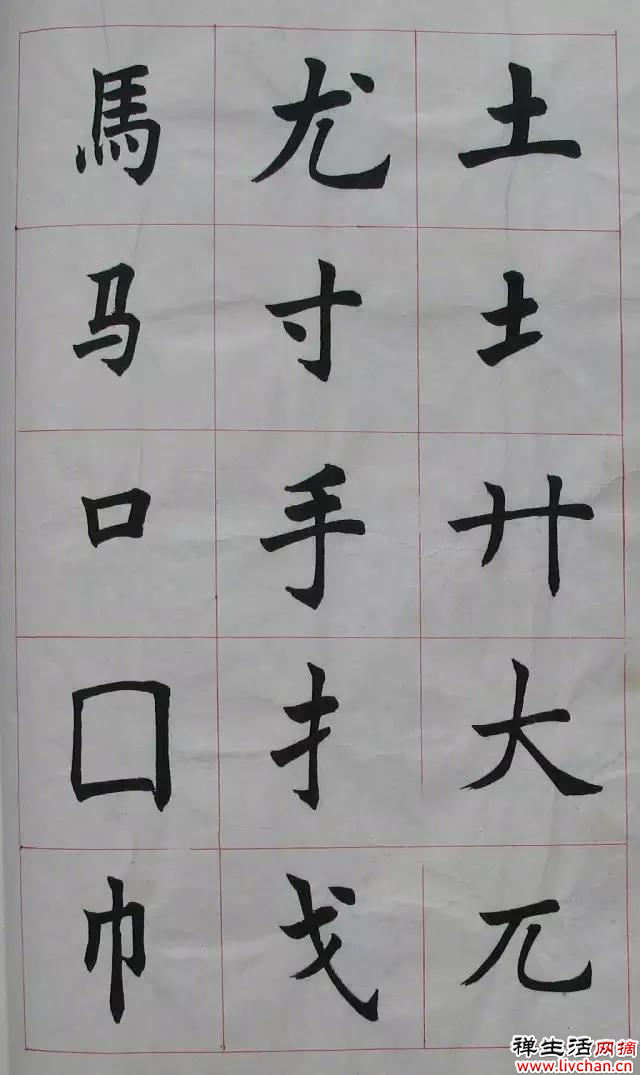 土土廾大兀
尤寸手扌戈
馬马口囗巾
禅生活网摘
www.livchan.cn